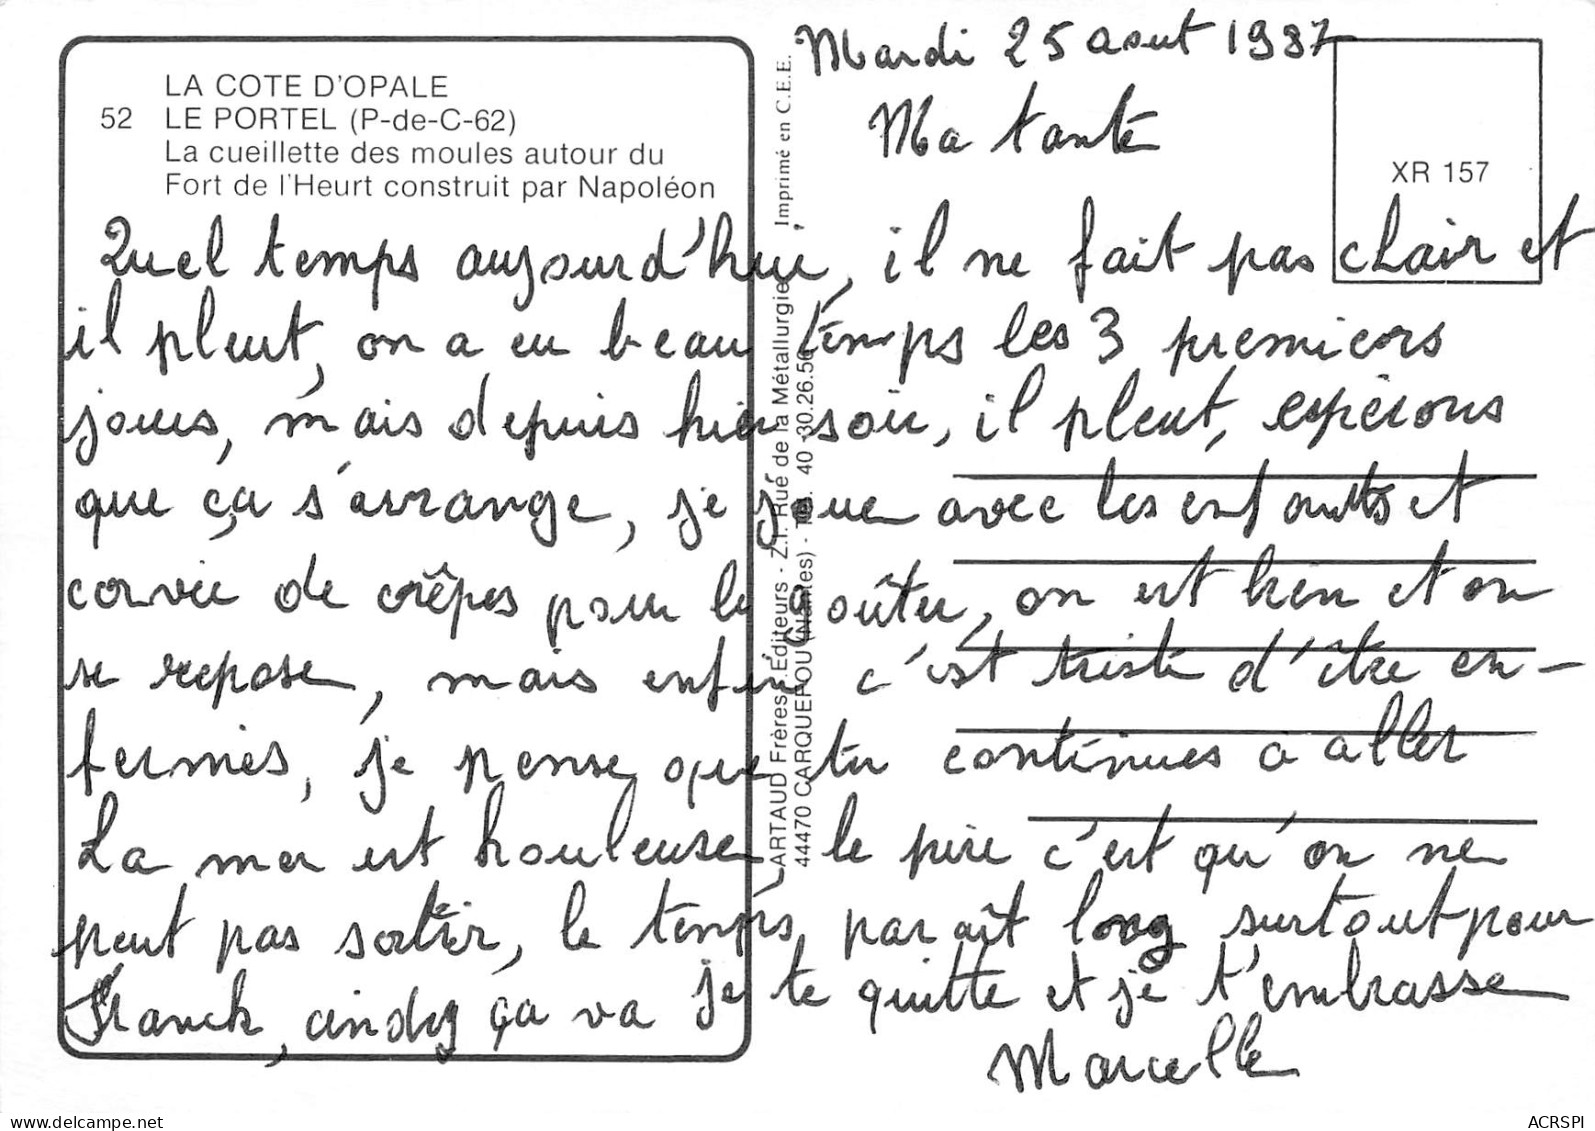 LA COTE D'OPALE
52 LE PORTEL (P-de-C-62)
La cueillette des moules autour du
Fort de l'Heurt construit par Napoléon
Imprimé en C.E.E.
ARTAUD Frères Éditeurs - Z.I. Rue de la Métallurgie
44470 CARQUEFOU (Nantes) - Tél. 40 30.26.56
XR 157
Mardi 25 aout 1987
Ma tante
Quel temps aujourd'hui, il ne fait pas clair et
il pleut, on a eu beau temps les 3 premiers
jours, mais depuis hier soir, il pleut, espérons
que ça s'arrange, je joue avec les enfants et
corvée de crêpes pour le goûter, on est bien et on
se repose, mais enfin c'est triste d'être en-
fermés, je pense que tu continues à aller
La mer est houleuse, le pire c'est qu'on ne
peut pas sortir, le temps parait long surtout pour
Franck, ça va je te quitte et je t'embrasse
Marcelle
delcampe.net
ACRSPI